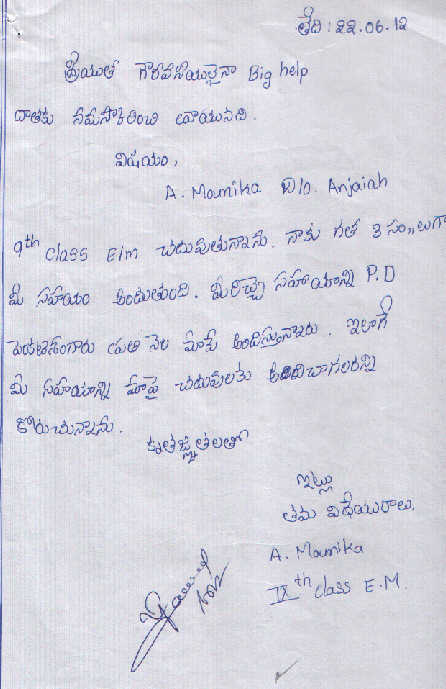 తేది : 22.06.12
శ్రీయుత గౌరవనీయులైనా Big help
దాతకు నమస్కరించి వ్రాయునది.
విషయం,
A. Mounika D/o. Anjaiah
9th class E/m చదువుతున్నాను. నాకు గత 3 సం,,లుగా
మీ సహాయం అందుతుంది. మీరిచ్చే సహాయాన్ని P.D
గారు ప్రతి నెల మాకు అందిస్తున్నారు. ఇలాగే
మీ సహాయాన్ని మాపై చదువులకు అందించాగలరని
కోరుచున్నాను.
కృతజ్ఞతలతో
ఇట్లు
తమ విధేయురాలు,
A. Mounika
IXth class E.M.